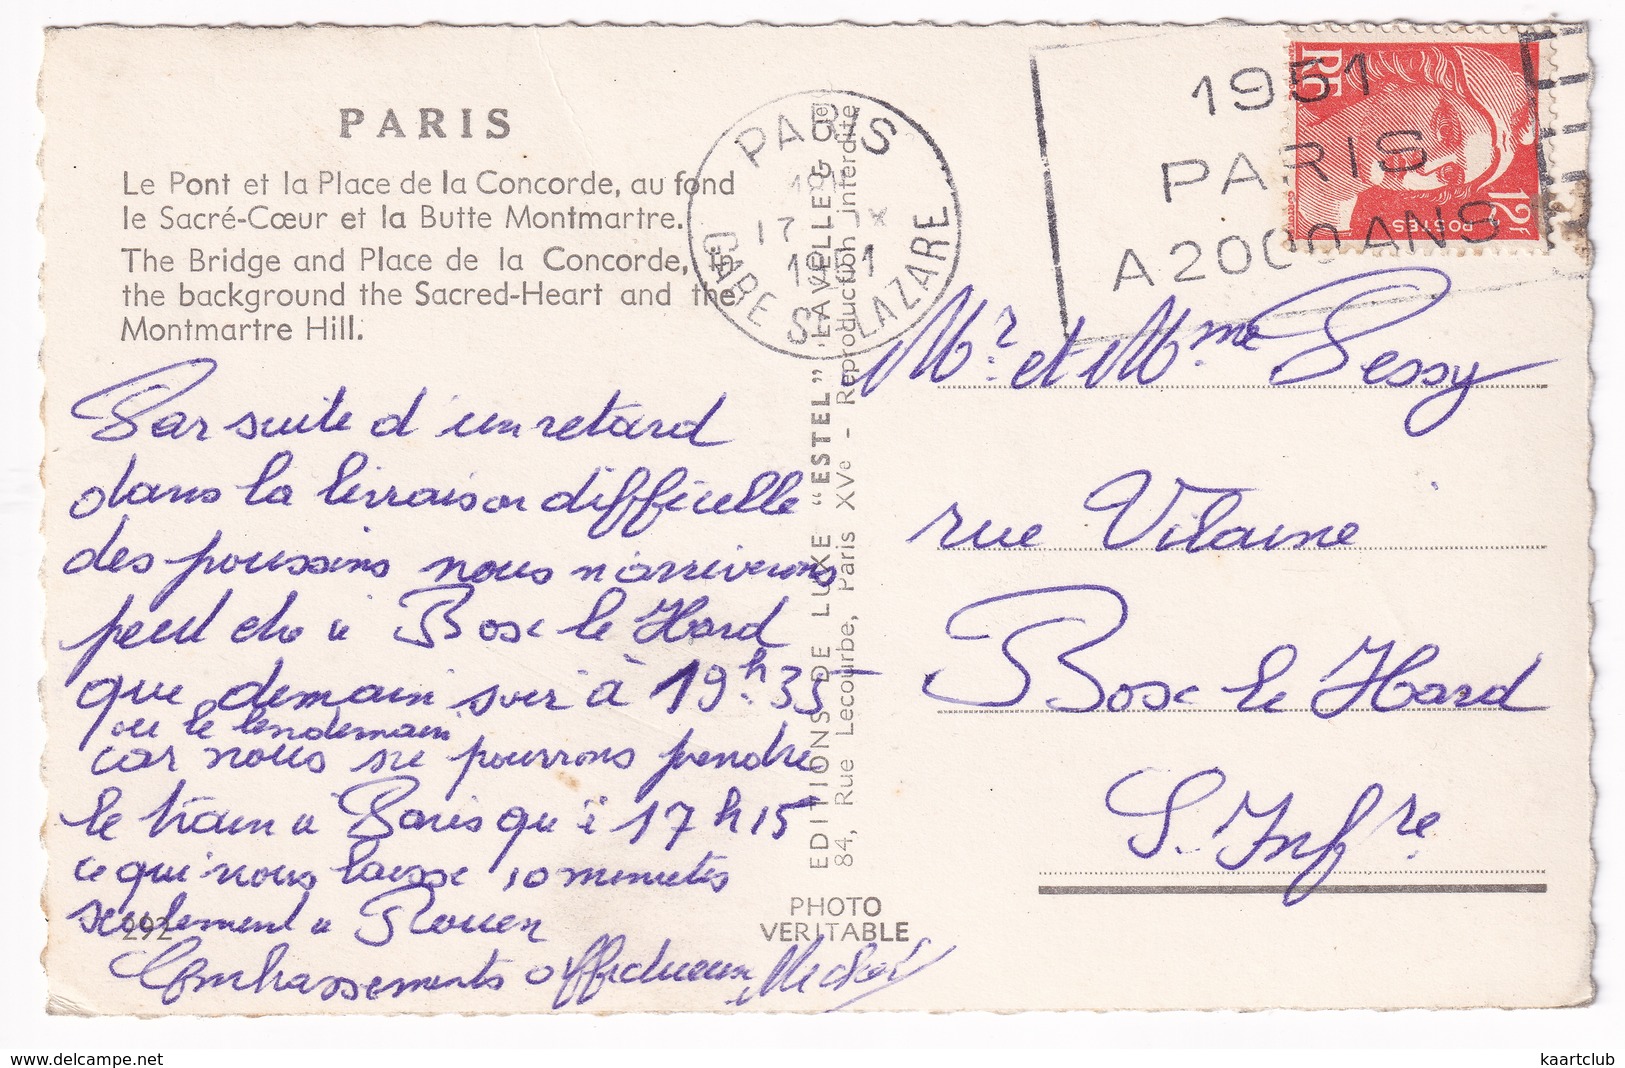 PARIS
Le Pont et la Place de la Concorde, au fond
le Sacré-Cœur et la Butte Montmartre.
The Bridge and Place de la Concorde, in
the background the Sacred-Heart and the
Montmartre Hill.
Par suite d'un retard
dans la livraison difficille
des poussins nous n'arriverons
peut etre à Bosc le Hard
que demain soir à 19h.35
ou le lendemain
car nous ne pourrons prendre
le train à Paris qu'à 17h15
ce qui nous laisse 10 minutes
seulement à Rouen
Embrassements affectueux
292
EDITIONS DE LUXE "ESTEL" LAVELLE & Cie
84, Rue Lecourbe, Paris XVe - Reproduction interdite
PHOTO
VERITABLE
PARIS
17 IX
1951
GARE St LAZARE
1951
PARIS
A 2000 ANS
RF
POSTES
12F
Mr. et Mme Pessy
rue Vilaine
Bosc le Hard
S. Infre
kaartclub